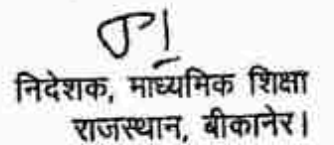 निदेशक, माध्यमिक शिक्षा
राजस्थान, बीकानेर।